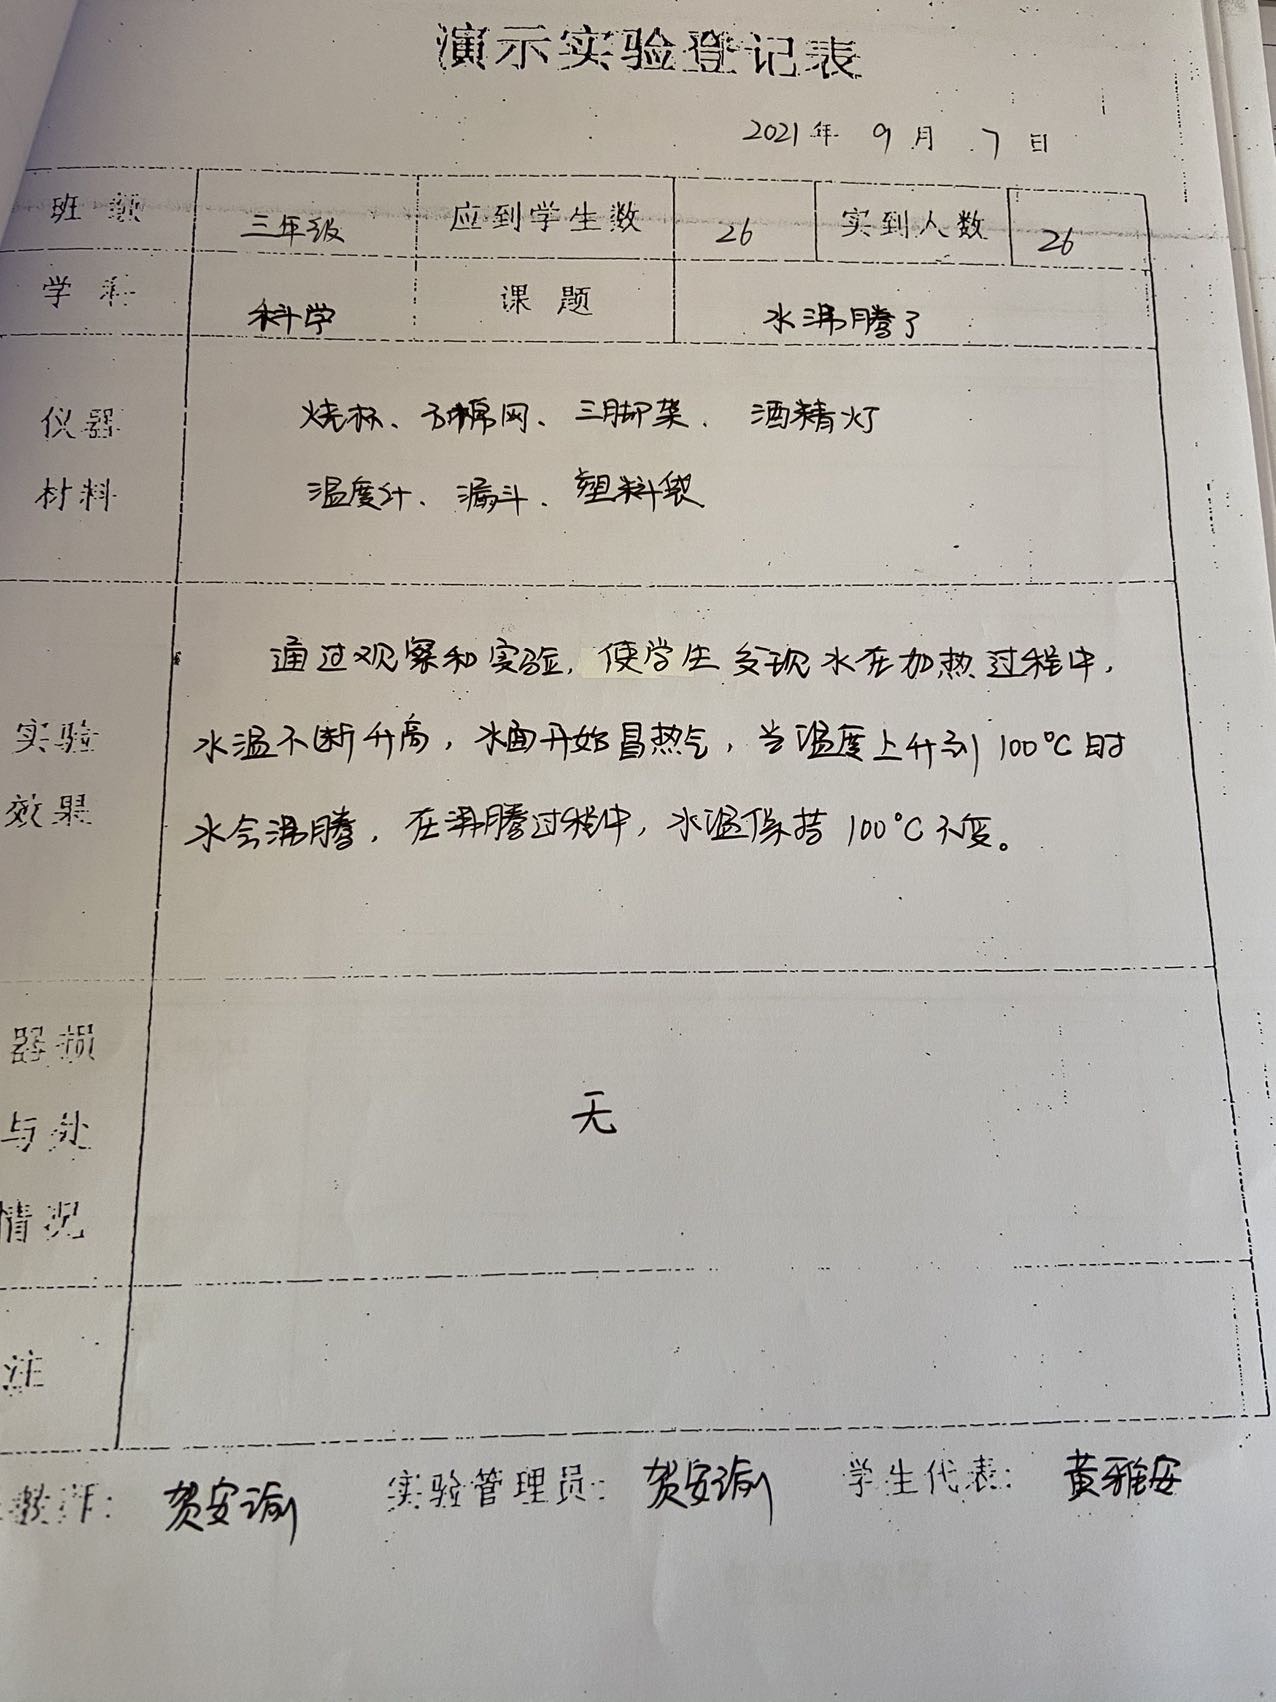 演示实验登记表
2021年 9月 7日
班 级 三年级 应到学生数 26 实到人数 26
学 科 科学 课 题 水沸腾了
仪器 烧杯、石棉网、三脚架、酒精灯
材料 温度计、漏斗、塑料袋
通过观察和实验,使学生发现水在加热过程中,
实验 水温不断升高,水面开始冒热气,当温度上升到100℃时
效果 水会沸腾,在沸腾过程中,水温保持100℃不变。
器损
与处 无
情况
注
教师: 贺安瑜 实验管理员: 贺安瑜 学生代表: 黄雅安